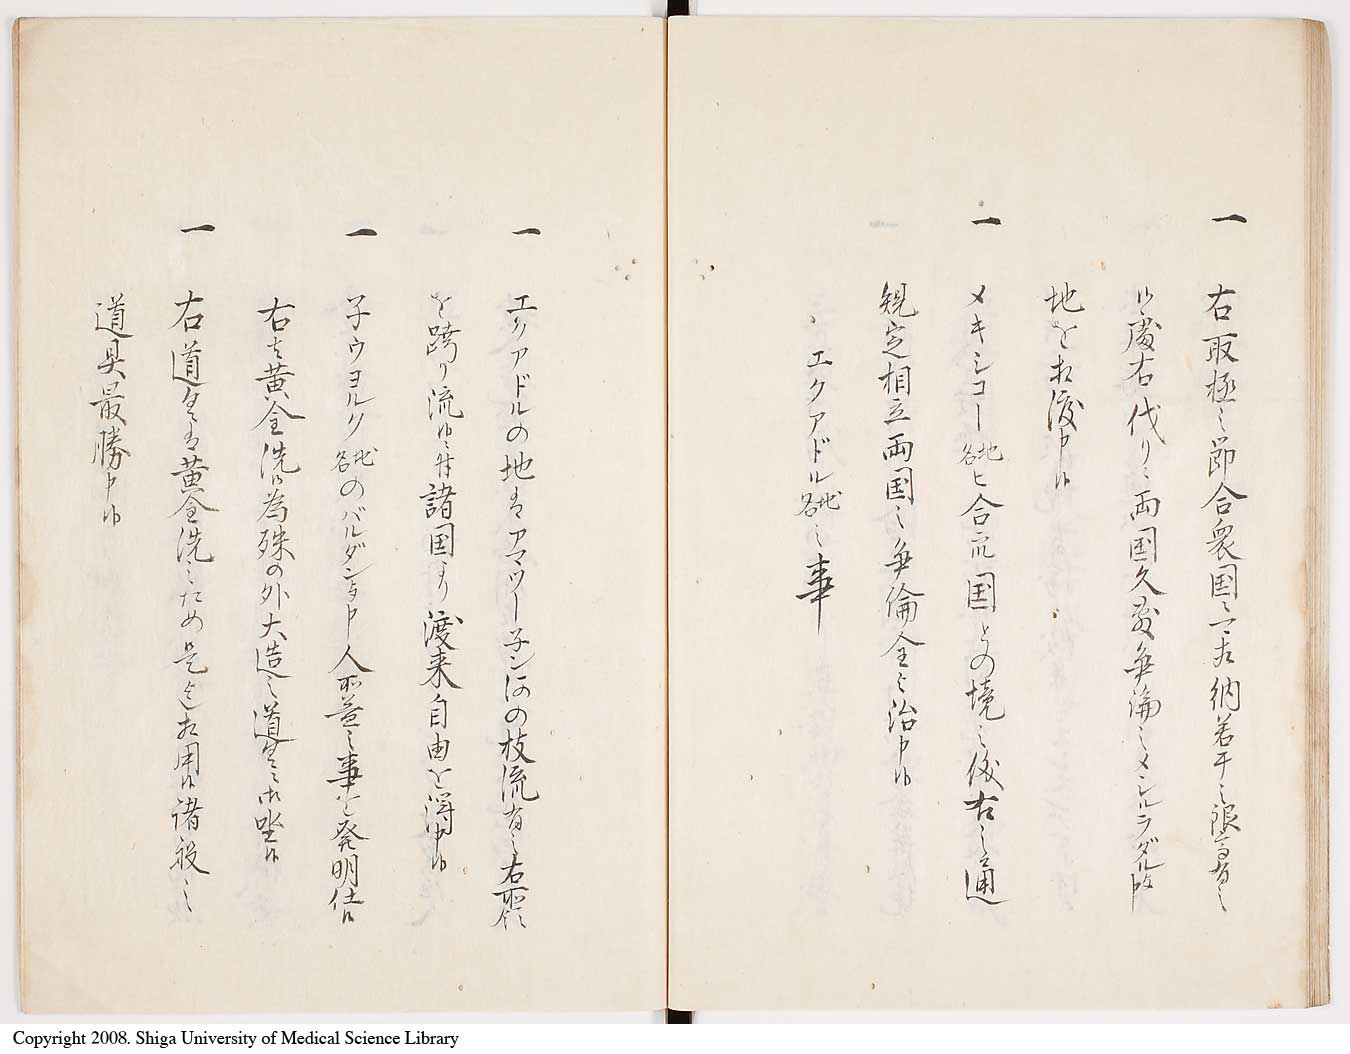 一 右取極之節合衆国ニ而右納若干之限高有之
候處右代りニ両国久敷無論之メシルラダル与申
地を相渡申候
一 メキシコー地名ヒ合衆国との境之後右之通
規定相立両国之無倫全く治申候
、エクアドル地名之事
一 エクアドルの地はアマツー子ン河の枝流有之右所領
を跨り流候ニ付諸国より渡来自由を得申候
一 子ウヨルク地名のバルダン与申人所益之事を発明仕候
右は黄金洗候為殊の外大造之道具ニ御坐候
一 右道具は黄金洗之ため是迄相用候諸般之
道具最勝申候
Copyright 2008. Shiga University of Medical Science Library